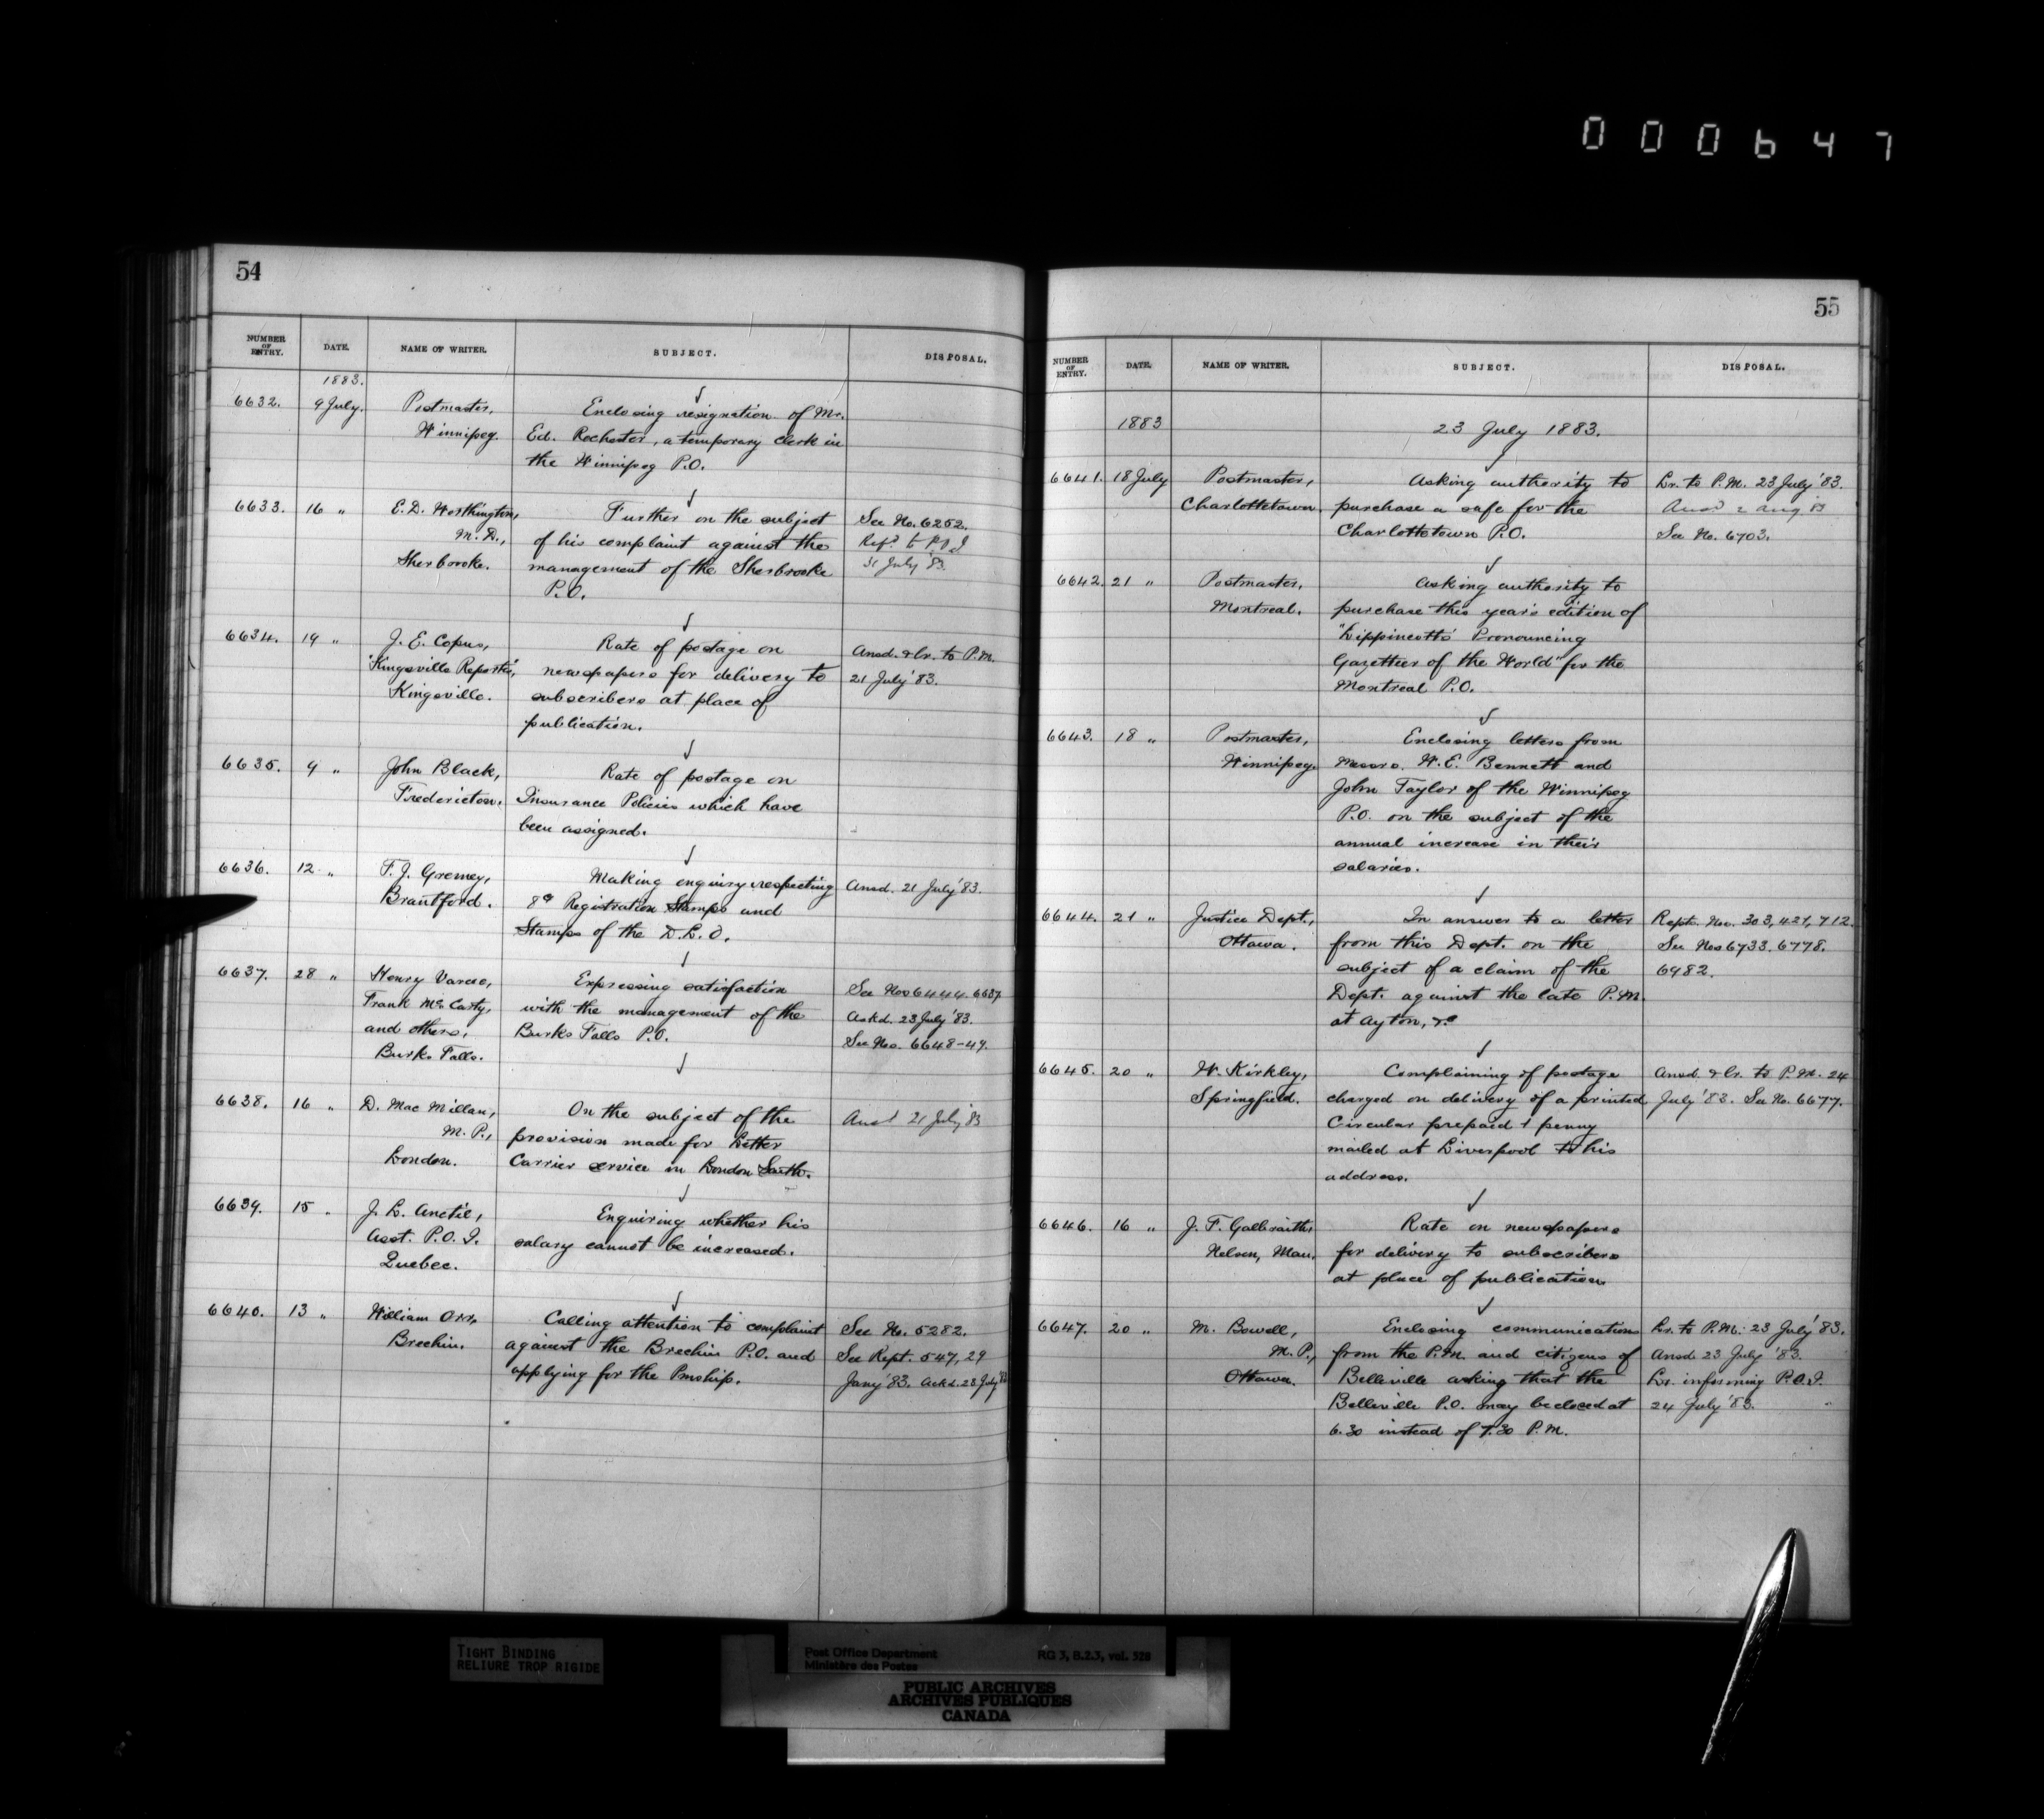 000647
54
NUMBER OF ENTRY. DATE. NAME OF WRITER. SUBJECT. DISPOSAL.
1883.
6632. 9 July. Postmaster, Enclosing resignation of Mr.
Winnipeg. Ed. Rochester, a temporary clerk in
the Winnipeg P.O.
6633. 16 " E. D. Worthington, Further on the subject See No. 6252.
M.D., of his complaint against the Refd. to P.O.I
Sherbrooke. management of the Sherbrooke 31 July '83.
P.O.
6634. 19 " J. E. Copus, Rate of postage on Ansd. & Lr. to P.M.
"Kingsville Reporter", newspapers for delivery to 21 July '83.
Kingsville. subscribers at place of
publication.
6635. 9 " John Black, Rate of postage on
Fredericton. Insurance Policies which have
been assigned.
6636. 12 " F. J. Gremey, Making enquiry respecting Ansd. 21 July '83.
Brantford. 8c Registration Stamps and
Stamps of the D.L.O.
6637. 28 " Henry Vance, Expressing satisfaction See Nos 6444. 6637.
Frank McCarty, with the management of the Askd. 23 July '83.
and others, Burks Falls P.O. See Nos. 6648-49.
Burks Falls.
6638. 16 " D. MacMillan, On the subject of the Ansd 21 July 83
M.P., provision made for Letter
London. Carrier service in London South.
6639. 15 " J. L. Anctil, Enquiring whether his
Asst. P.O.I. salary cannot be increased.
Quebec.
6640. 13 " William Orr, Calling attention to complaint See No. 5282.
Brechin. against the Brechin P.O. and See Rept. 547, 29
applying for the Pmship. Jany '83. Ackd. 23 July '83
55
NUMBER OF ENTRY. DATE. NAME OF WRITER. SUBJECT. DISPOSAL.
1883 23 July 1883.
6641. 18 July Postmaster, Asking authority to Lr. to P.M. 23 July '83.
Charlottetown. purchase a safe for the Ansd 2 Aug 83
Charlottetown P.O. See No. 6703.
6642. 21 " Postmaster, Asking authority to
Montreal. purchase this year's edition of
"Lippincott's Pronouncing
Gazetteer of the World" for the
Montreal P.O.
6643. 18 " Postmaster, Enclosing letters from
Winnipeg. Messrs. W. E. Bennett and
John Taylor of the Winnipeg
P.O. on the subject of the
annual increase in their
salaries.
6644. 21 " Justice Dept., In answer to a letter Rept. Nos. 303, 421, 712.
Ottawa. from this Dept. on the See Nos 6733. 6778.
subject of a claim of the 6982.
Dept. against the late P.M.
at Ayton, &c
6645. 20 " W. Kirkley, Complaining of postage Ansd. & Lr. to P.M. 24
Springfield. charged on delivery of a printed July '83. See No. 6677.
Circular prepaid 1 penny
mailed at Liverpool to his
address.
6646. 16 " J. F. Galbraith, Rate on newspapers
Nelson, Man. for delivery to subscribers
at place of publication
6647. 20 " M. Bowell, Enclosing communications Lr. to P.M. 23 July '83.
M.P., from the P.M. and citizens of Ansd 23 July '83.
Ottawa. Belleville asking that the Lr. informing P.O.I.
Belleville P.O. may be closed at 24 July '83.
6.30 instead of 7.30 P.M.
TIGHT BINDING
RELIURE TROP RIGIDE
Post Office Department RG 3, B.2.3, vol. 528
Ministère des Postes
PUBLIC ARCHIVES
ARCHIVES PUBLIQUES
CANADA